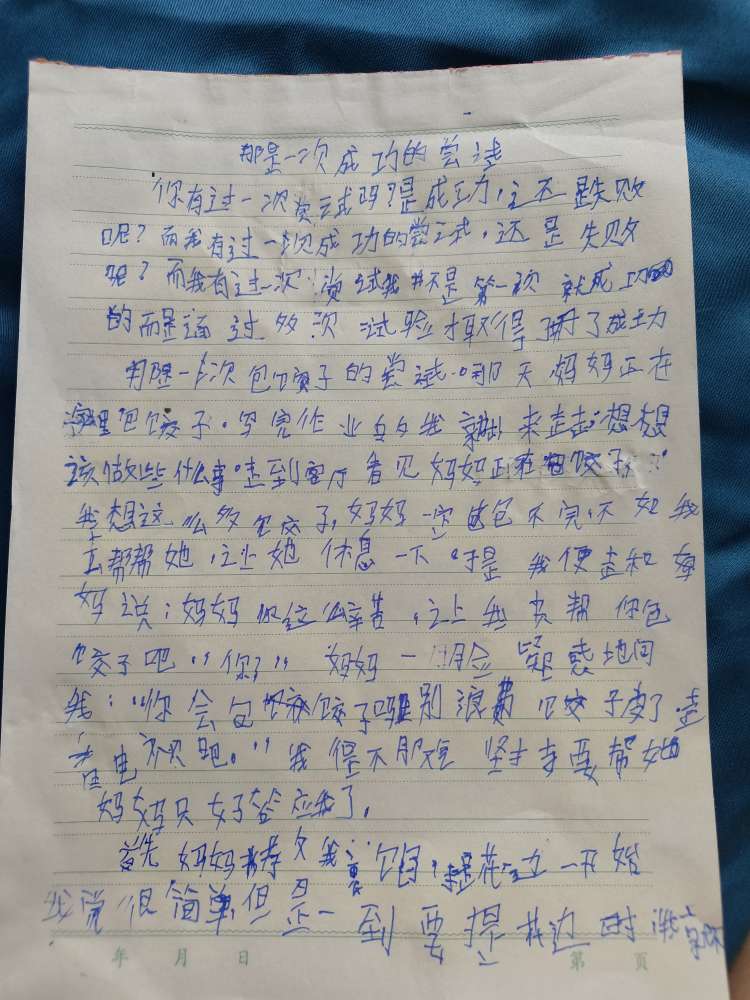 那是一次成功的尝试
你有过一次尝试吗?是成功,还是失败
呢?而我有过一次成功的尝试,还是失败
呢?而我有过一次尝试我并不是第一次就成功
的而是通过多次试验才取得了成功
那是一次包饺子的尝试。那天妈妈正在
家里包饺子。写完作业的我就来走走想想
该做些什么事走到客厅看见妈妈正在包饺子
我想这么多包饺子,妈妈一定包不完,不如我
去帮帮她,让她休息一下。于是我便走和妈
妈说:妈妈你这么辛苦,让我来帮你包
饺子吧"你?"妈妈一脸疑惑地问
我:"你会包饺子吗别浪费饺子皮了走
看电视吧。"我得不服 坚持要帮她
妈妈只好答应我了。
首先妈妈教我 包 , 捏花边一开始
我觉很简单但是一到要捏花边时
年 月 日 第 页